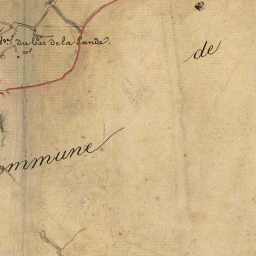 du Bas de la Lande.
de
Commune